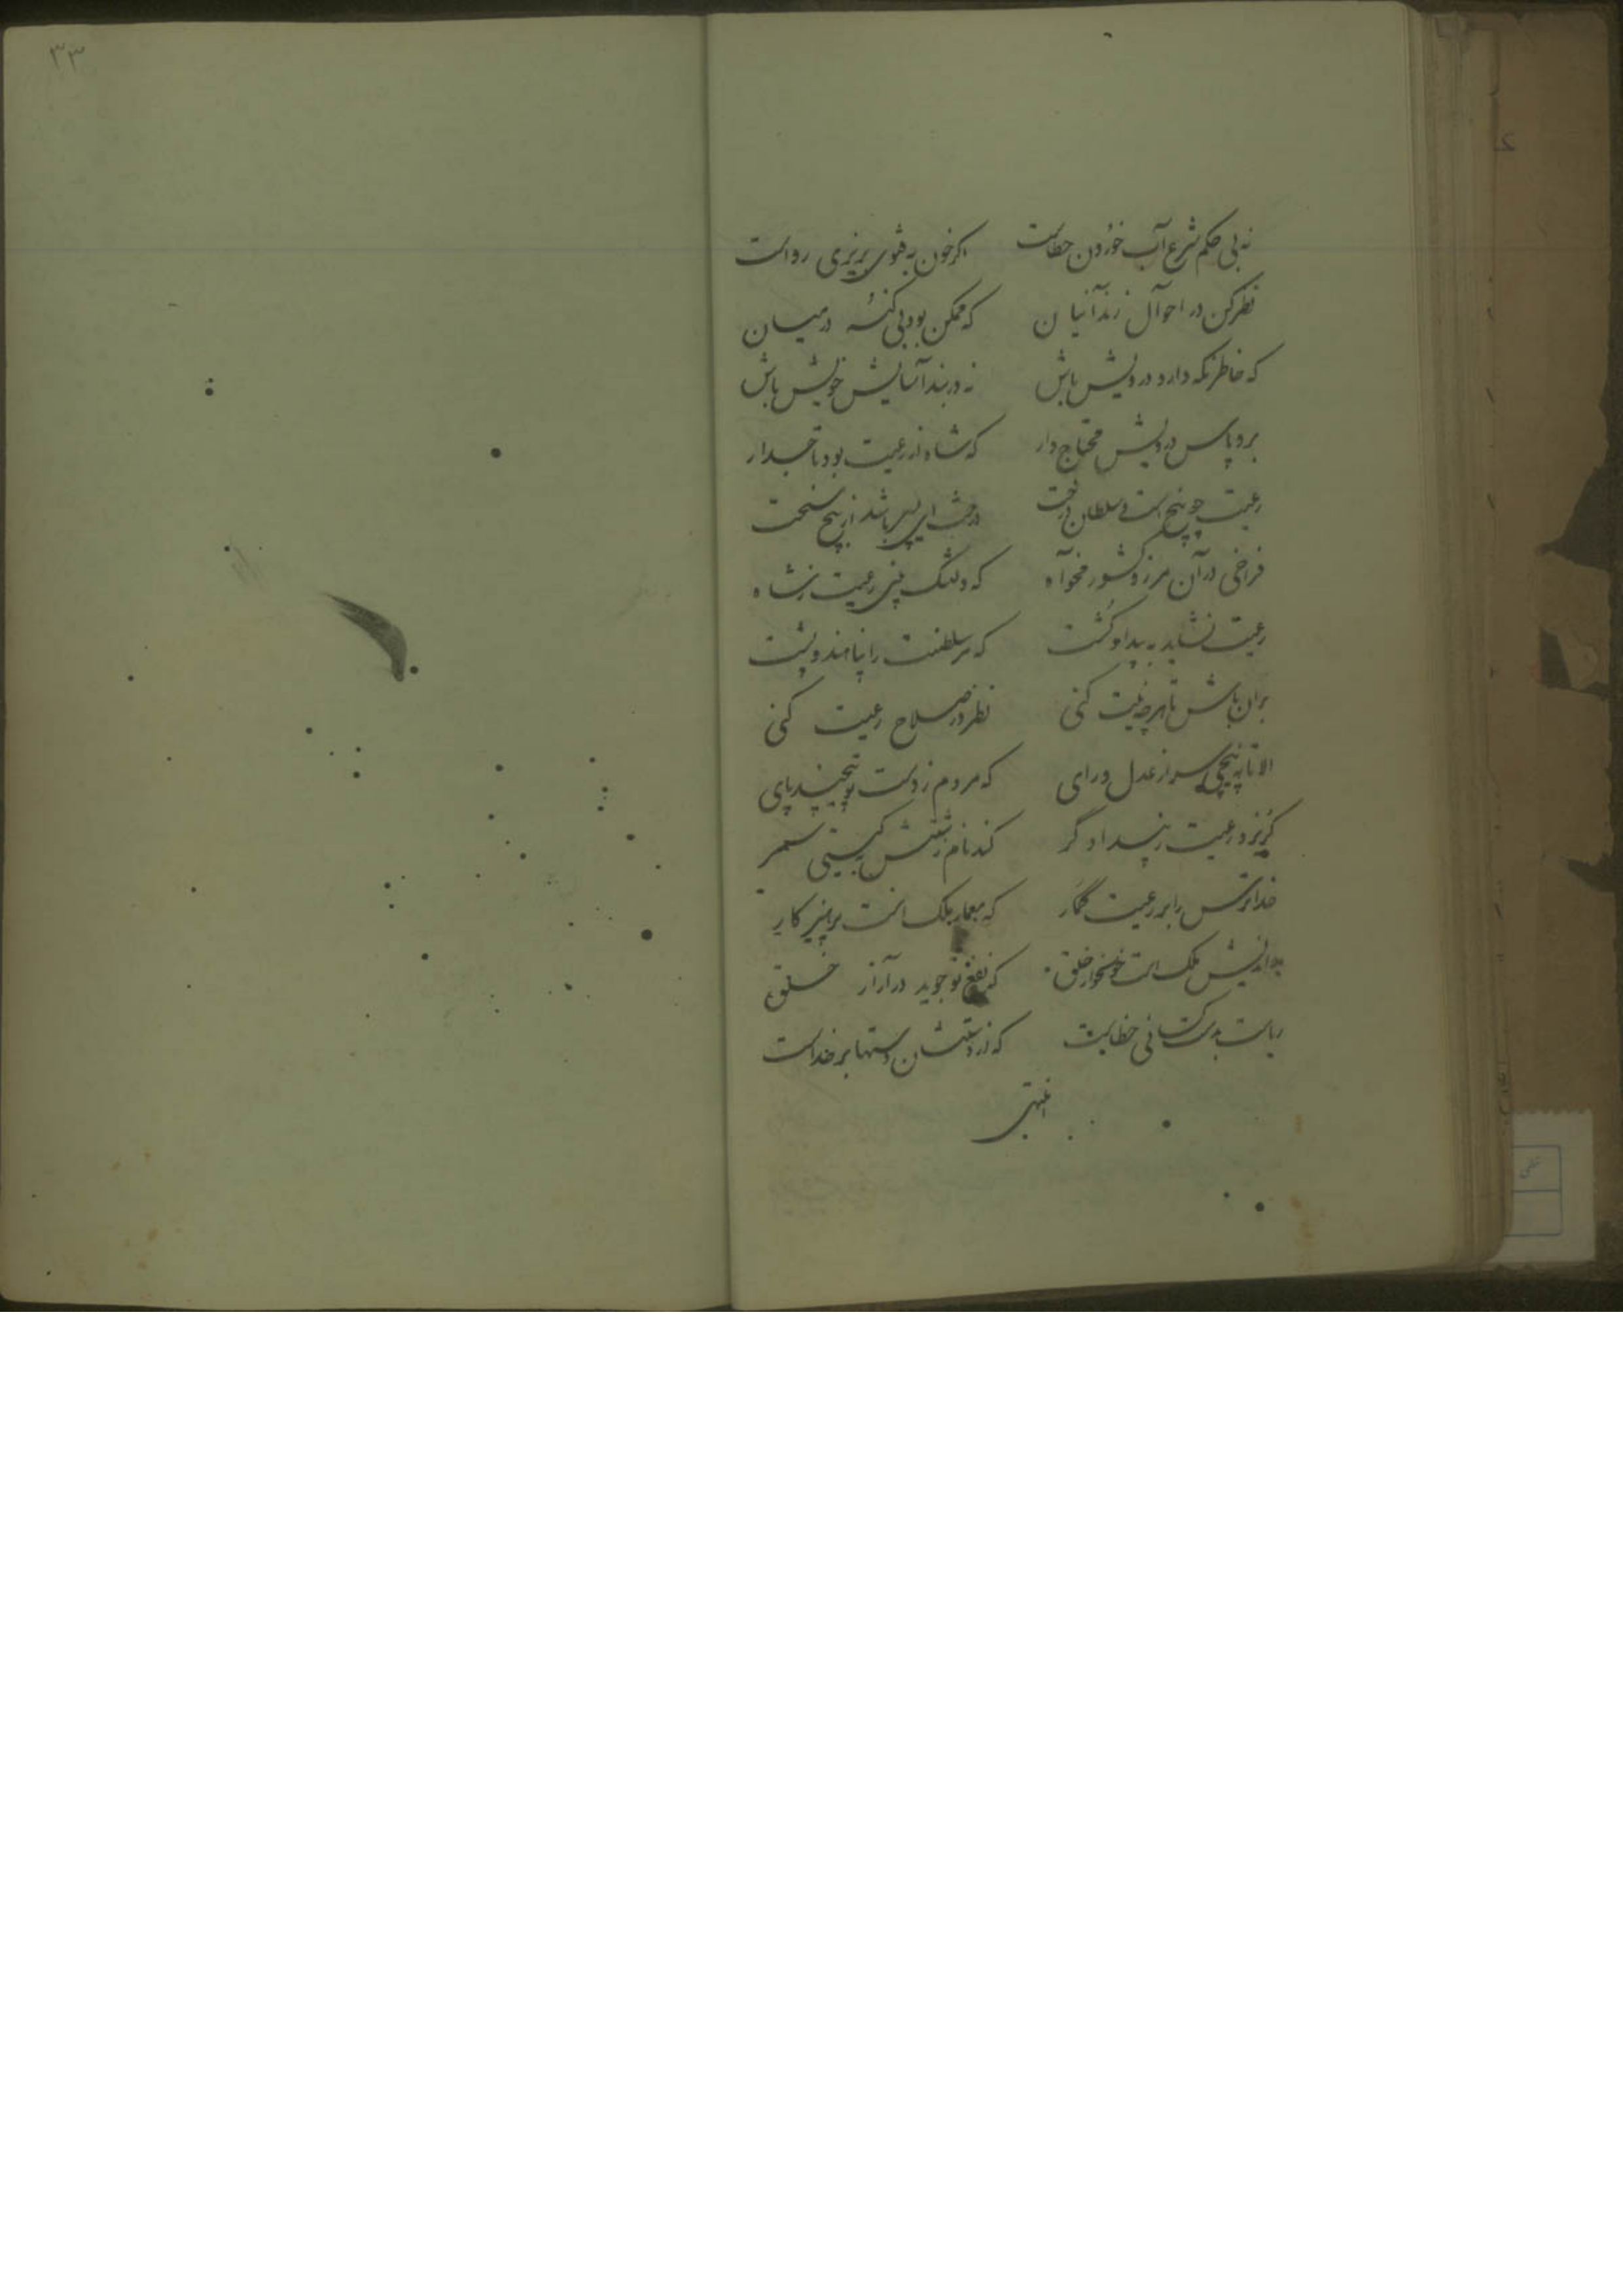 ۳۳
نه بی حکم شرع آب خوردن خطاست اگر خون به فتوی بریزی رواست
نظر کن در احوال زندانیان که ممکن بود بی گنه در میان
که خاطر نگه دار درویش باش نه در بند آسایش خویش باش
برو پاس درویش محتاج دار که شاه از رعیت بود تاجدار
رعیت چو بیخ است و سلطان درخت درخت ای پسر باشد از بیخ سخت
فراخی در آن مرز و کشور مخواه که دلتنگ بینی رعیت ز شاه
رعیت نشاید به بیداد کشت که مر سلطنت را پناهند و پشت
بران باش تا هر چه نیت کنی نظر در صلاح رعیت کنی
الا تا نپیچی سر از عدل و رای که مردم ز دست تو پیچند پای
گریزد رعیت ز بیدادگر کند نام زشتش بگیتی سمر
خدا ترس را بر رعیت گمار که معمار ملک است پرهیزکار
بداندیش ملک است خونخوار خلق که نفع تو جوید در آزار خلق
ریاست بدست کسانی خطاست که از دستشان دستها بر خداست
انتهی